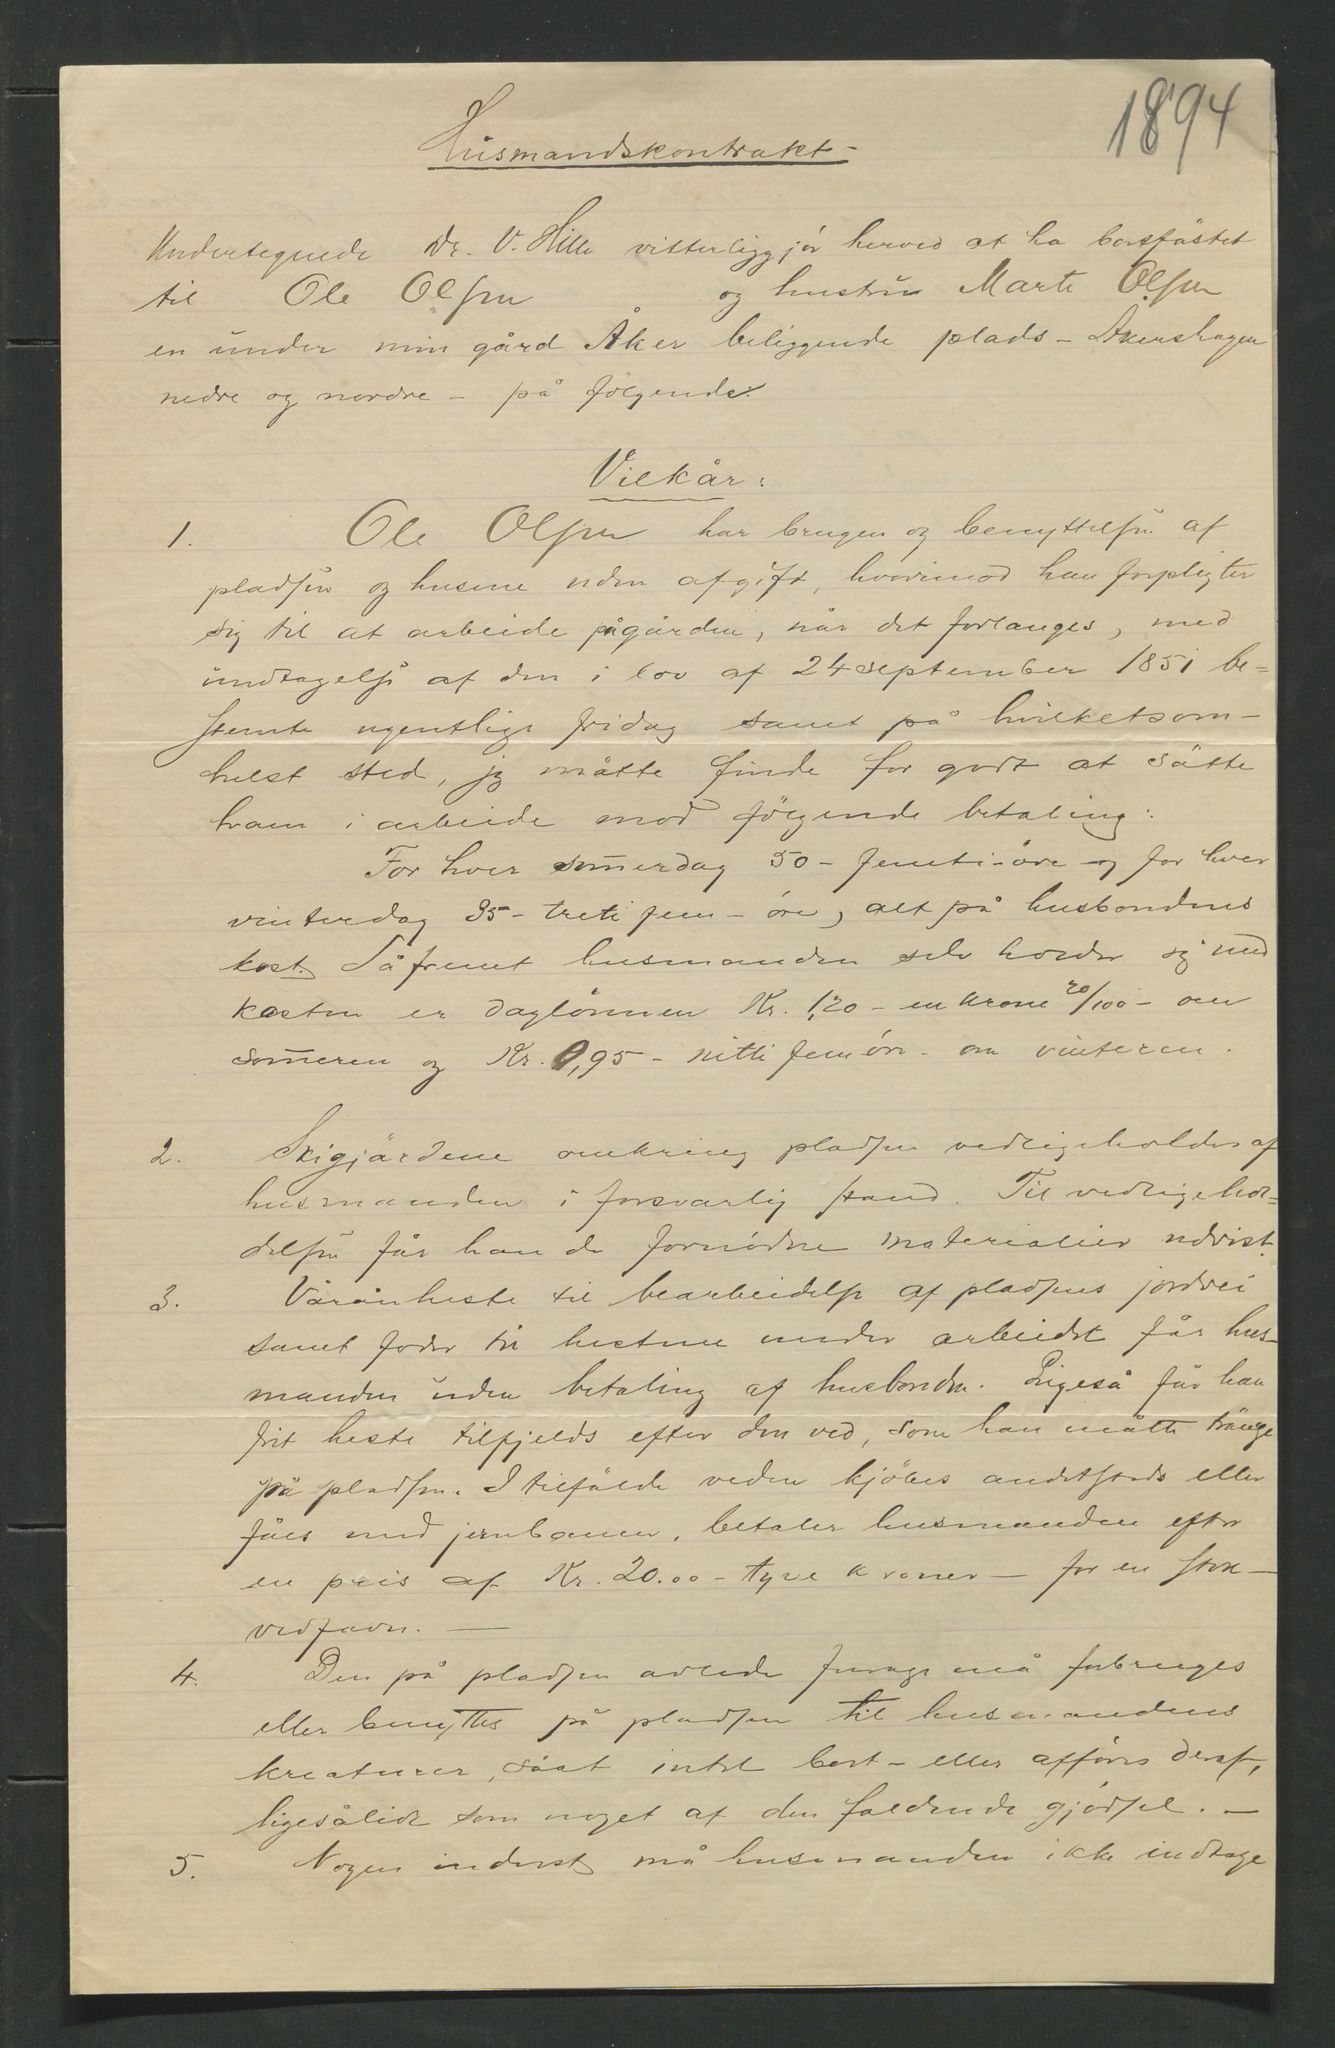 1894
Husmandskontrakt -
Undertegnede Dr. V. Hille vitterliggjör herved at ha bortfästet
til Ole Olsen og hustru Marte Olsen
en under min gård Åker beliggende plads - Åkershagen
nedre og nordre - på følgende:
Vilkår:
1. Ole Olsen har brugen og benyttelsen af
pladsen og husene uden afgift, hvorimod han forpligter
sig til at arbeide på gården, når det forlanges, med
undtagelse af den i lov af 24 september 1851 be=
stemte ugentlige fridag samt på hvilketsom-
helst sted, jeg måtte finde for godt at sätte
ham i arbeide mod følgende betaling:
For hver somerdag 50 - femti - öre - og for hver
vinterdag 35 - treti fem - öre, alt på husbondens
kost. Såfremt husmanden selv holder sig med
kosten er daglönnen Kr. 1,20 - en krone 20/100 - om
someren og Kr. 0,95 - nitti fem öre - om vinteren.
2. Skigjärdene omkring pladsen vedligeholdes af
husmanden i forsvarlig stand. Til vedligehol=
delsen får han de fornödne materialier udvist.
3. Våronheste til bearbeidelse af pladsens jordvei
samt foder til hestene under arbeidet får hus-
manden uden betaling af husbonden. Ligeså får han
frit heste tilfjelds efter den ved, som han måtte tränge
på pladsen. I tilfälde veden kjöbes andetsteds eller
fåes med jernbanen, betaler husmanden efter
en pris af Kr. 20.00 - tyve kroner - for en stor -
vedfavn. -
4. Den på pladsen avlede furage må forbruges
eller benyttes på pladsen til husmandens
kreaturer, såat intet bort - eller afföres deraf,
ligesålidt som noget af den faldende gjödsel. -
5. Nogen inderst må husmanden ikke indtage